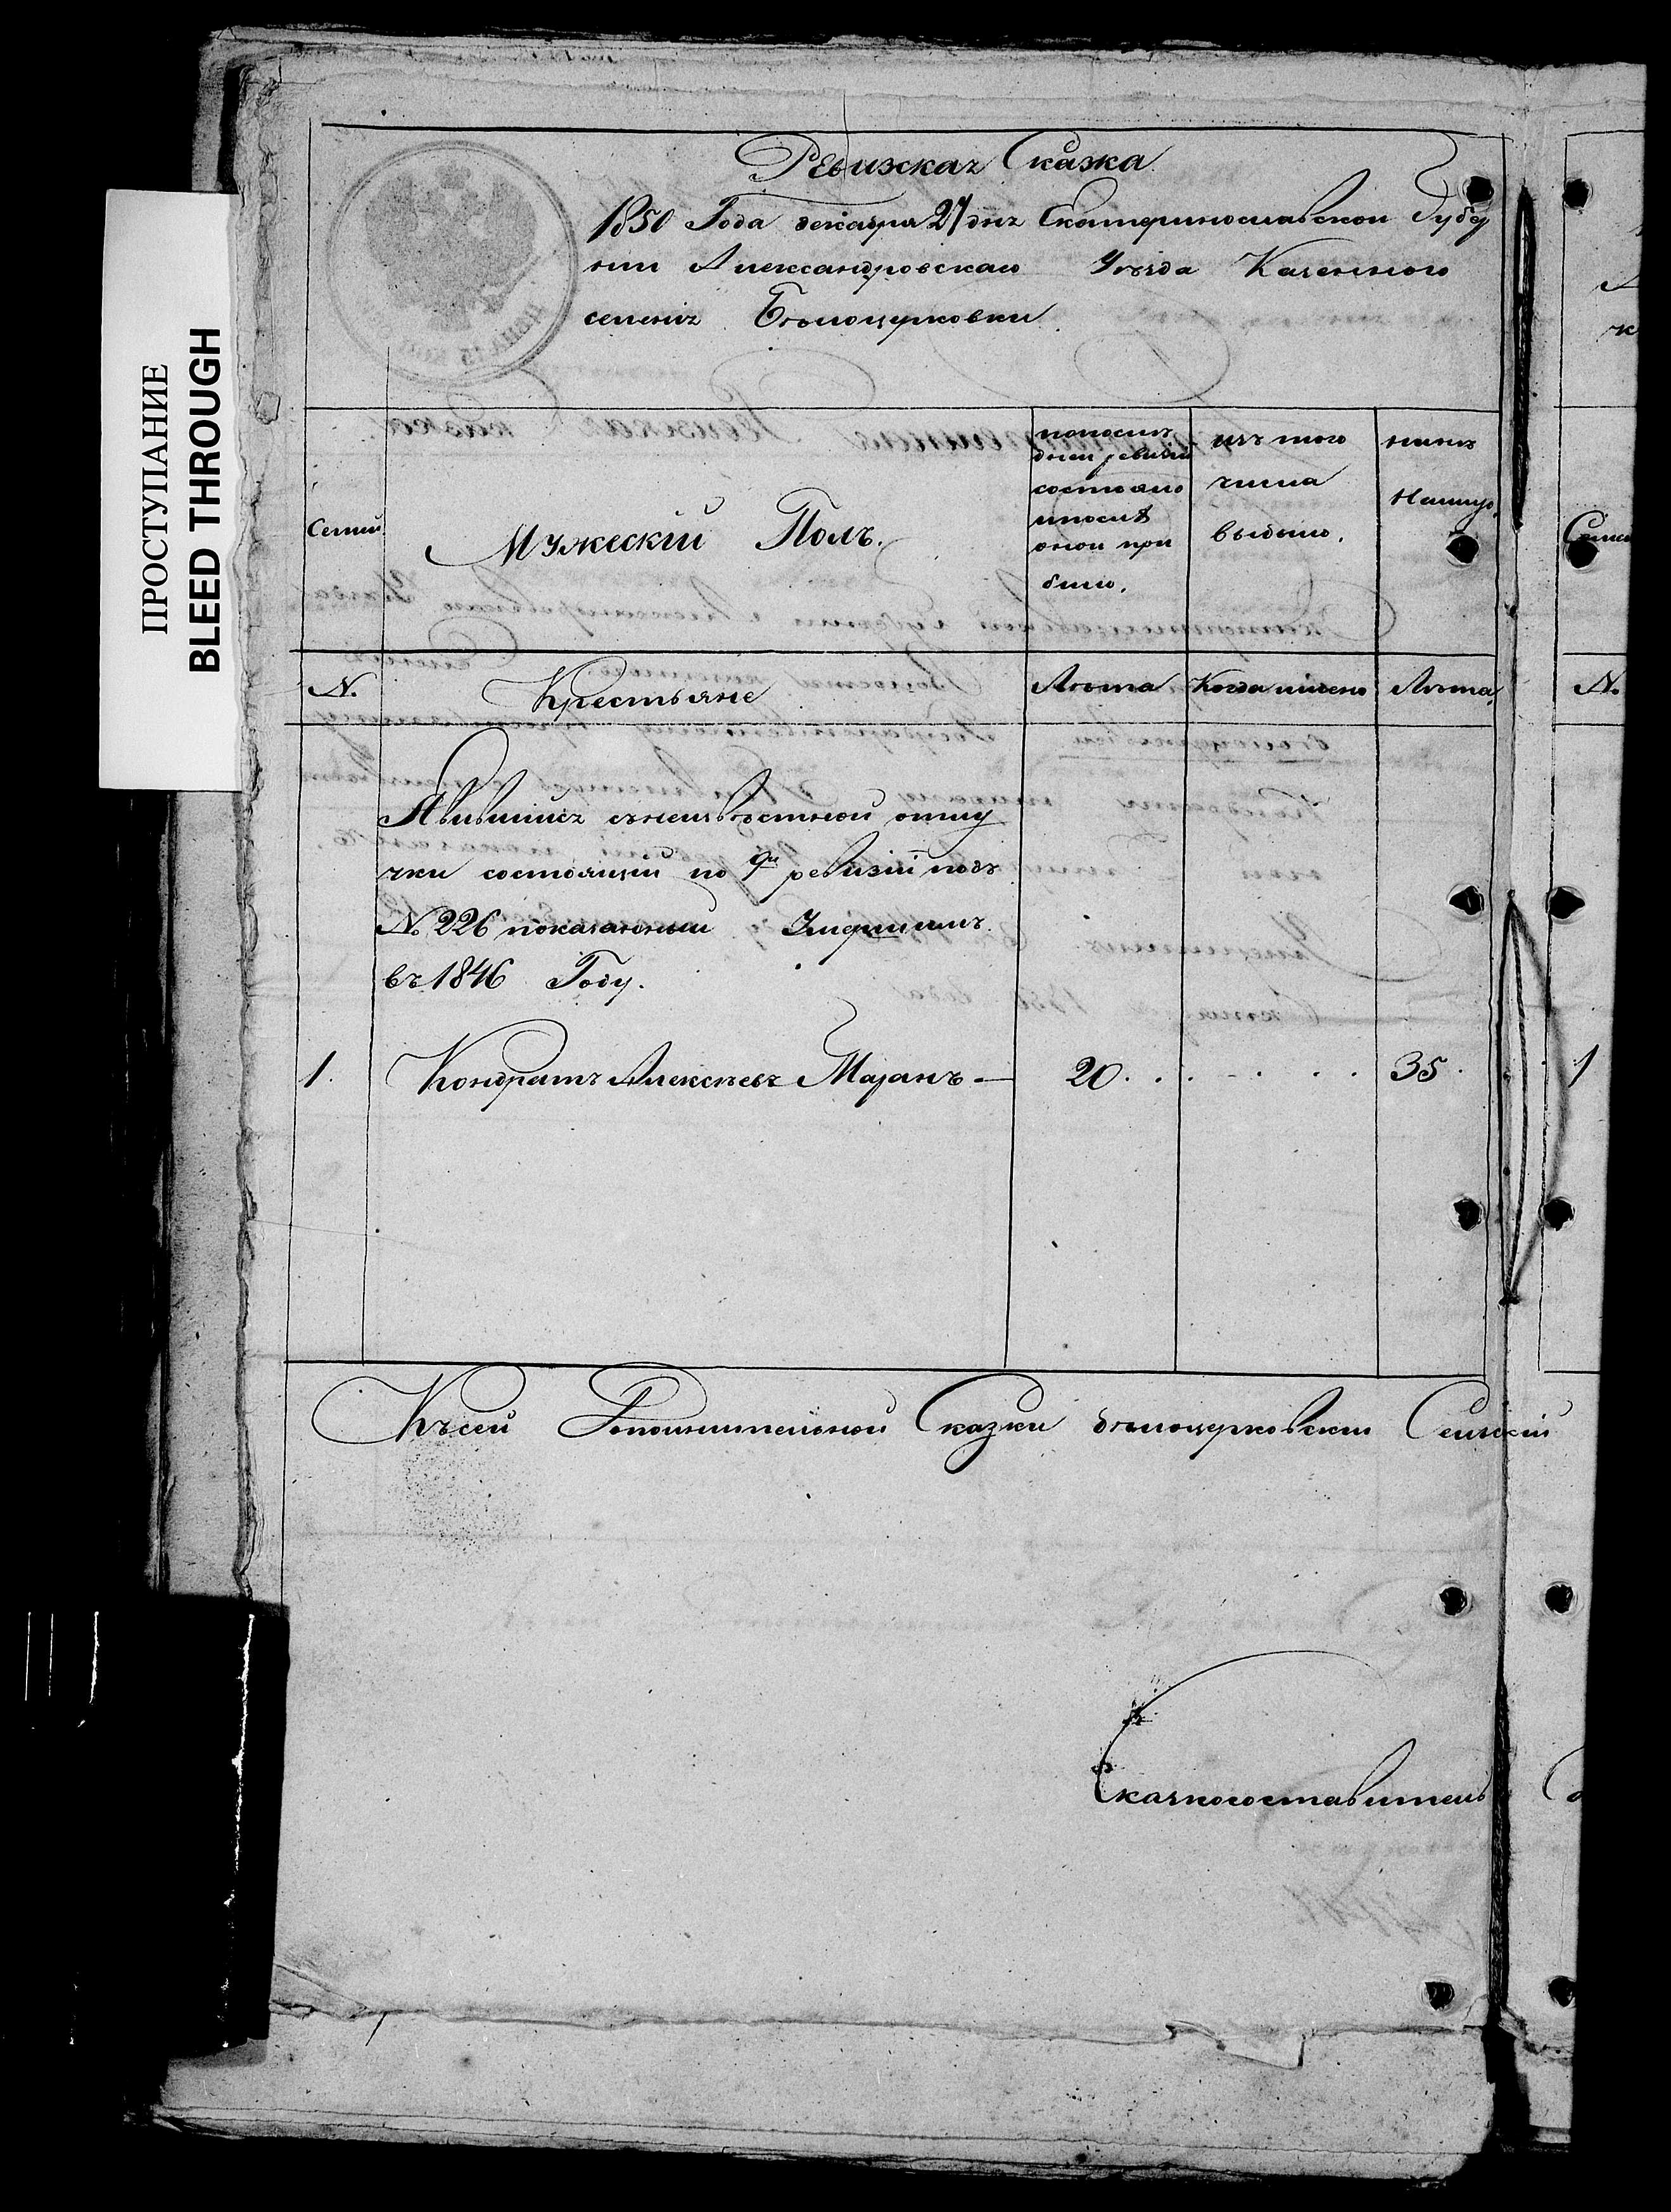 ПРОСТУПАНИЕ
BLEED THROUGH
Ревижская Сказка.
1850 Года декабря 27 дня Екатеринославской Губер
нии Александровскаго Уезда Казенного
селения Бѣлоцерковки.
Семьи
Мужескій Полъ.
попослѣ
дней ревизіи
состояло
ипослѣ
оной при
было.
изъ того
числа
выбыло.
нынѣ
налицо.
N.
Крестьяне
Лѣта
Когда имено
Лѣта
N.
Явившійся съ неизвѣстной отлу
чки состоящій по 9й ревизіи подъ
№ 226 показанный Умершимъ
въ 1846 Году.
1.
Кондратъ Алексѣевъ Мазанъ —
20. . . . - . . .
35.
1
Къ сей Дополнительной Сказки бѣлоцерковскій Сельскій
Сказкосоставитель